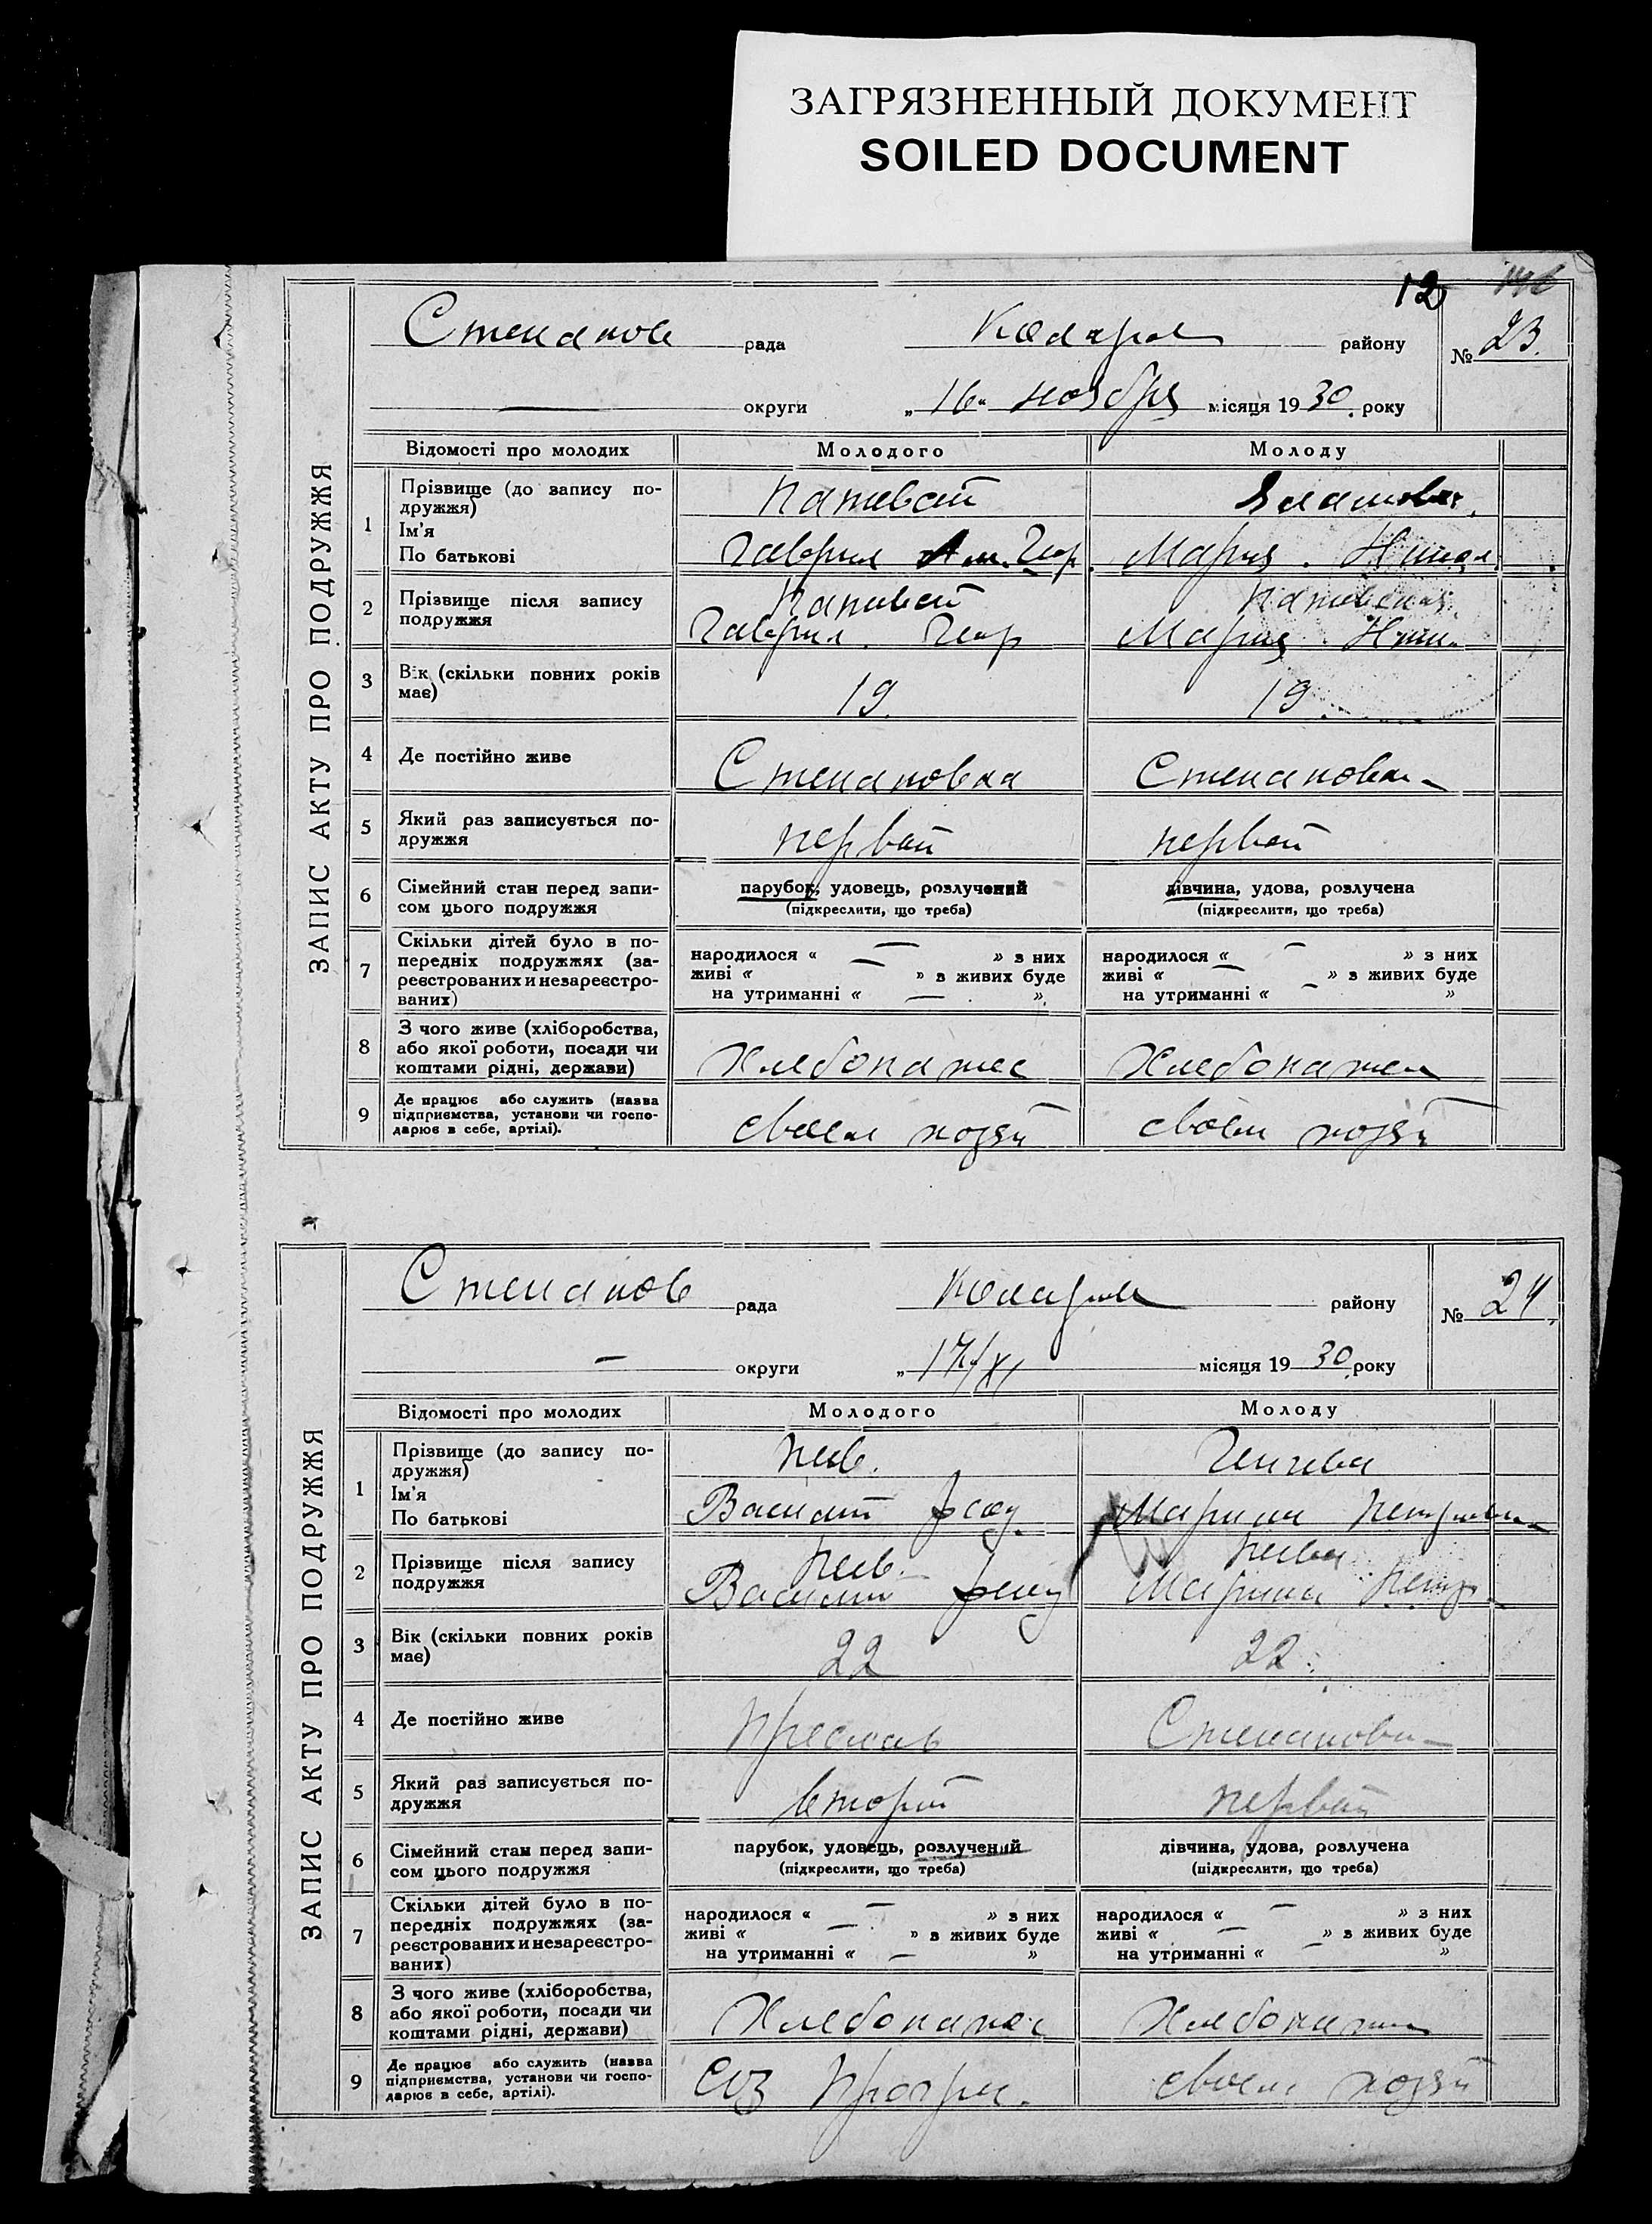 ЗАГРЯЗНЕННЫЙ ДОКУМЕНТ
SOILED DOCUMENT
12
ЗАПИС АКТУ ПРО ПОДРУЖЖЯ
Степанов рада Коларов району № 23.
— округи „16" ноября місяця 1930 року
Відомості про молодих Молодого Молоду
1 Прізвище (до запису по-
дружжя)
Ім'я
По батькові
Гаврил Геор. Мария
2 Прізвище після запису
подружжя
Гаврил. Геор Мария
3 Вік (скільки повних років
має)
19. 19
4 Де постійно живе
Степановка Степановка
5 Який раз записується по-
дружжя
первый первый
6 Сімейний стан перед запи-
сом цього подружжя
парубок, удовець, розлучений
(підкреслити, що треба)
дівчина, удова, розлучена
(підкреслити, що треба)
7 Скільки дітей було в по-
передніх подружжях (за-
реєстрованих и незареєстро-
ваних)
народилося « — » з них
живі « — » з живих буде
на утриманні « — »
народилося « — » з них
живі « — » з живих буде
на утриманні « — »
8 З чого живе (хліборобства,
або якої роботи, посади чи
коштами рідні, держави)
Хлебопашес Хлебопаше
9 Де працює або служить (назва
підприємства, установи чи госпо-
дарює в себе, артілі).
своем хозяй своем хозяй
ЗАПИС АКТУ ПРО ПОДРУЖЖЯ
Степанов рада Коларов району № 24.
— округи „17/XI місяця 1930 року
Відомості про молодих Молодого Молоду
1 Прізвище (до запису по-
дружжя)
Ім'я
По батькові
Пеев. Генчева
Василий Марина Петровна
2 Прізвище після запису
подружжя
Пеев. Пеева
Василий Марина Петр.
3 Вік (скільки повних років
має)
22 22
4 Де постійно живе
Преслав Степановка
5 Який раз записується по-
дружжя
второй первый
6 Сімейний стан перед запи-
сом цього подружжя
парубок, удовець, розлучений
(підкреслити, що треба)
дівчина, удова, розлучена
(підкреслити, що треба)
7 Скільки дітей було в по-
передніх подружжях (за-
реєстрованих и незареєстро-
ваних)
народилося « — » з них
живі « — » з живих буде
на утриманні « — »
народилося « — » з них
живі « — » з живих буде
на утриманні « — »
8 З чого живе (хліборобства,
або якої роботи, посади чи
коштами рідні, держави)
Хлебопашес Хлебопаше
9 Де працює або служить (назва
підприємства, установи чи госпо-
дарює в себе, артілі).
Соз своем хозяй